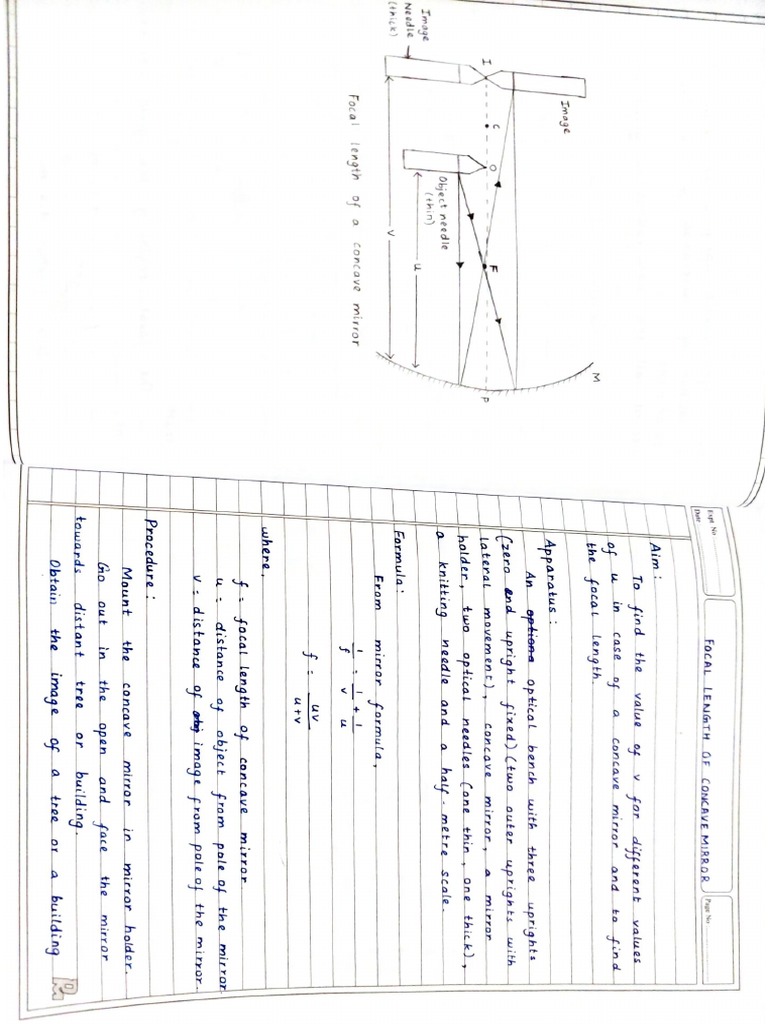 Image
Needle
(thick)
I
Image
C
O
Object needle
(thin)
F
u
v
M
P
Focal length of a concave mirror
Expt. No.
Date
FOCAL LENGTH OF CONCAVE MIRROR
Page No.
Aim:
To find the value of v for different values
of u in case of a concave mirror and to find
the focal length.
Apparatus:
An optical bench with three uprights
(zero end upright fixed) (two outer uprights with
lateral movement), concave mirror, a mirror
holder, two optical needles (one thin, one thick),
a knitting needle and a half-metre scale.
Formula:
From mirror formula,
1/f = 1/v + 1/u
f = uv/u+v
where,
f = focal length of concave mirror
u = distance of object from pole of the mirror
v = distance of image from pole of the mirror.
Procedure:
Mount the concave mirror in mirror holder.
Go out in the open and face the mirror
towards distant tree or building.
Obtain the image of a tree or a building